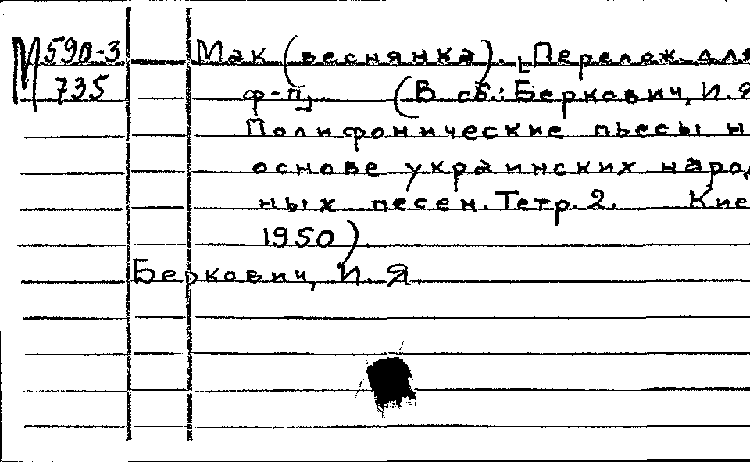 М 590-3
735
Мак (веснянка). [Перелож. для
ф-п.] (В сб.: Беркович, И. Я.
Полифонические пьесы н
основе украинских народ
ных песен. Тетр. 2. Кие
1950).
Беркович, И. Я.